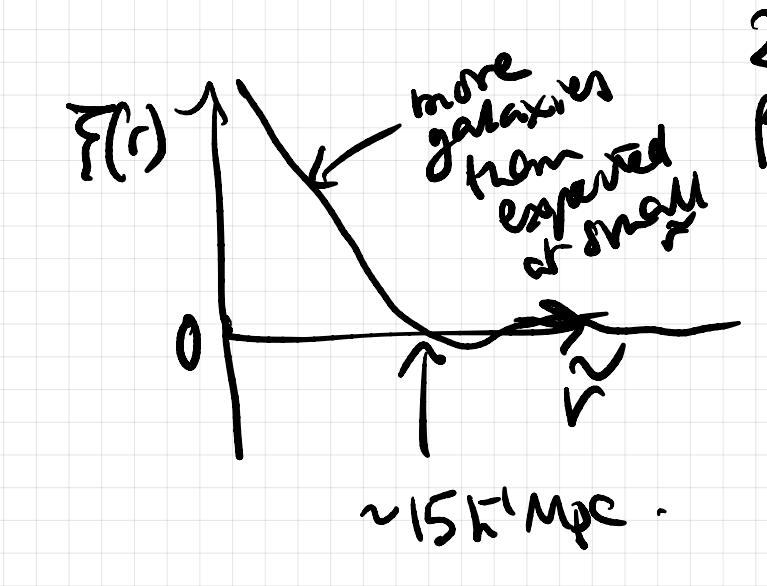 ξ(r)
more
galaxies
than
expected
at small
r̃
0
r̃
~15 h⁻¹ Mpc.